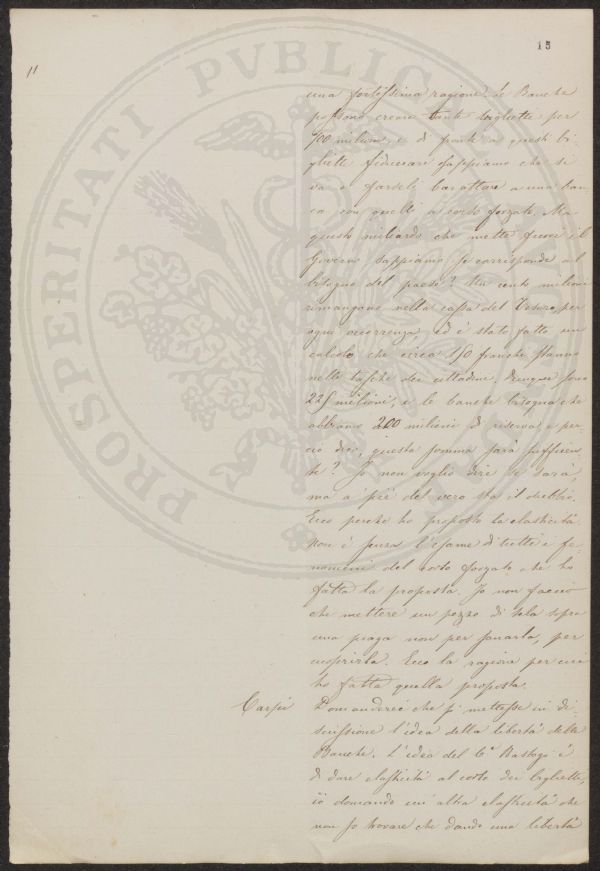 15
11
una fortissima ragione. Le Banche
possono creare tanti biglietti per
700 milioni, e di fronte a questi bi-
glietti fiduciari sappiamo che si
va a farseli barattare a una ban-
ca con quelli a corso forzato. Ma
questo miliardo che mette fuori il
Governo sappiamo se corrisponde al
bisogno del paese? Un cento milioni
rimangono nella cassa del Tesoro, per
ogni occorrenza, ed è stato fatto un
calcolo che circa 150 franchi stanno
nelle tasche dei cittadini, dunque sono
225 milioni, e le banche bisogna che
abbiano 200 milioni di riserva, e per-
ciò dico, questa somma sarà sufficien-
te? Io non voglio dire se sarà,
ma a piè del vero sta il dubbio.
Ecco perché ho proposto la elasticità.
Non è senza l'esame di tutti i fe-
nomeni del corso forzato che ho
fatta la proposta. Io non faccio
che mettere un pezzo di tela sopra
una piaga non per sanarla, per
cuoprirla. Ecco la ragione per cui
ho fatta quella proposta.
Carpi Domanderei che si mettesse in di-
scussione l'idea della libertà delle
Banche. L'idea del Cte Bastogi è
di dare elasticità al corso dei biglietti,
io domando un'altra elasticità che
non so trovare che dando una libertà
PROSPERITATI PVBLICAE